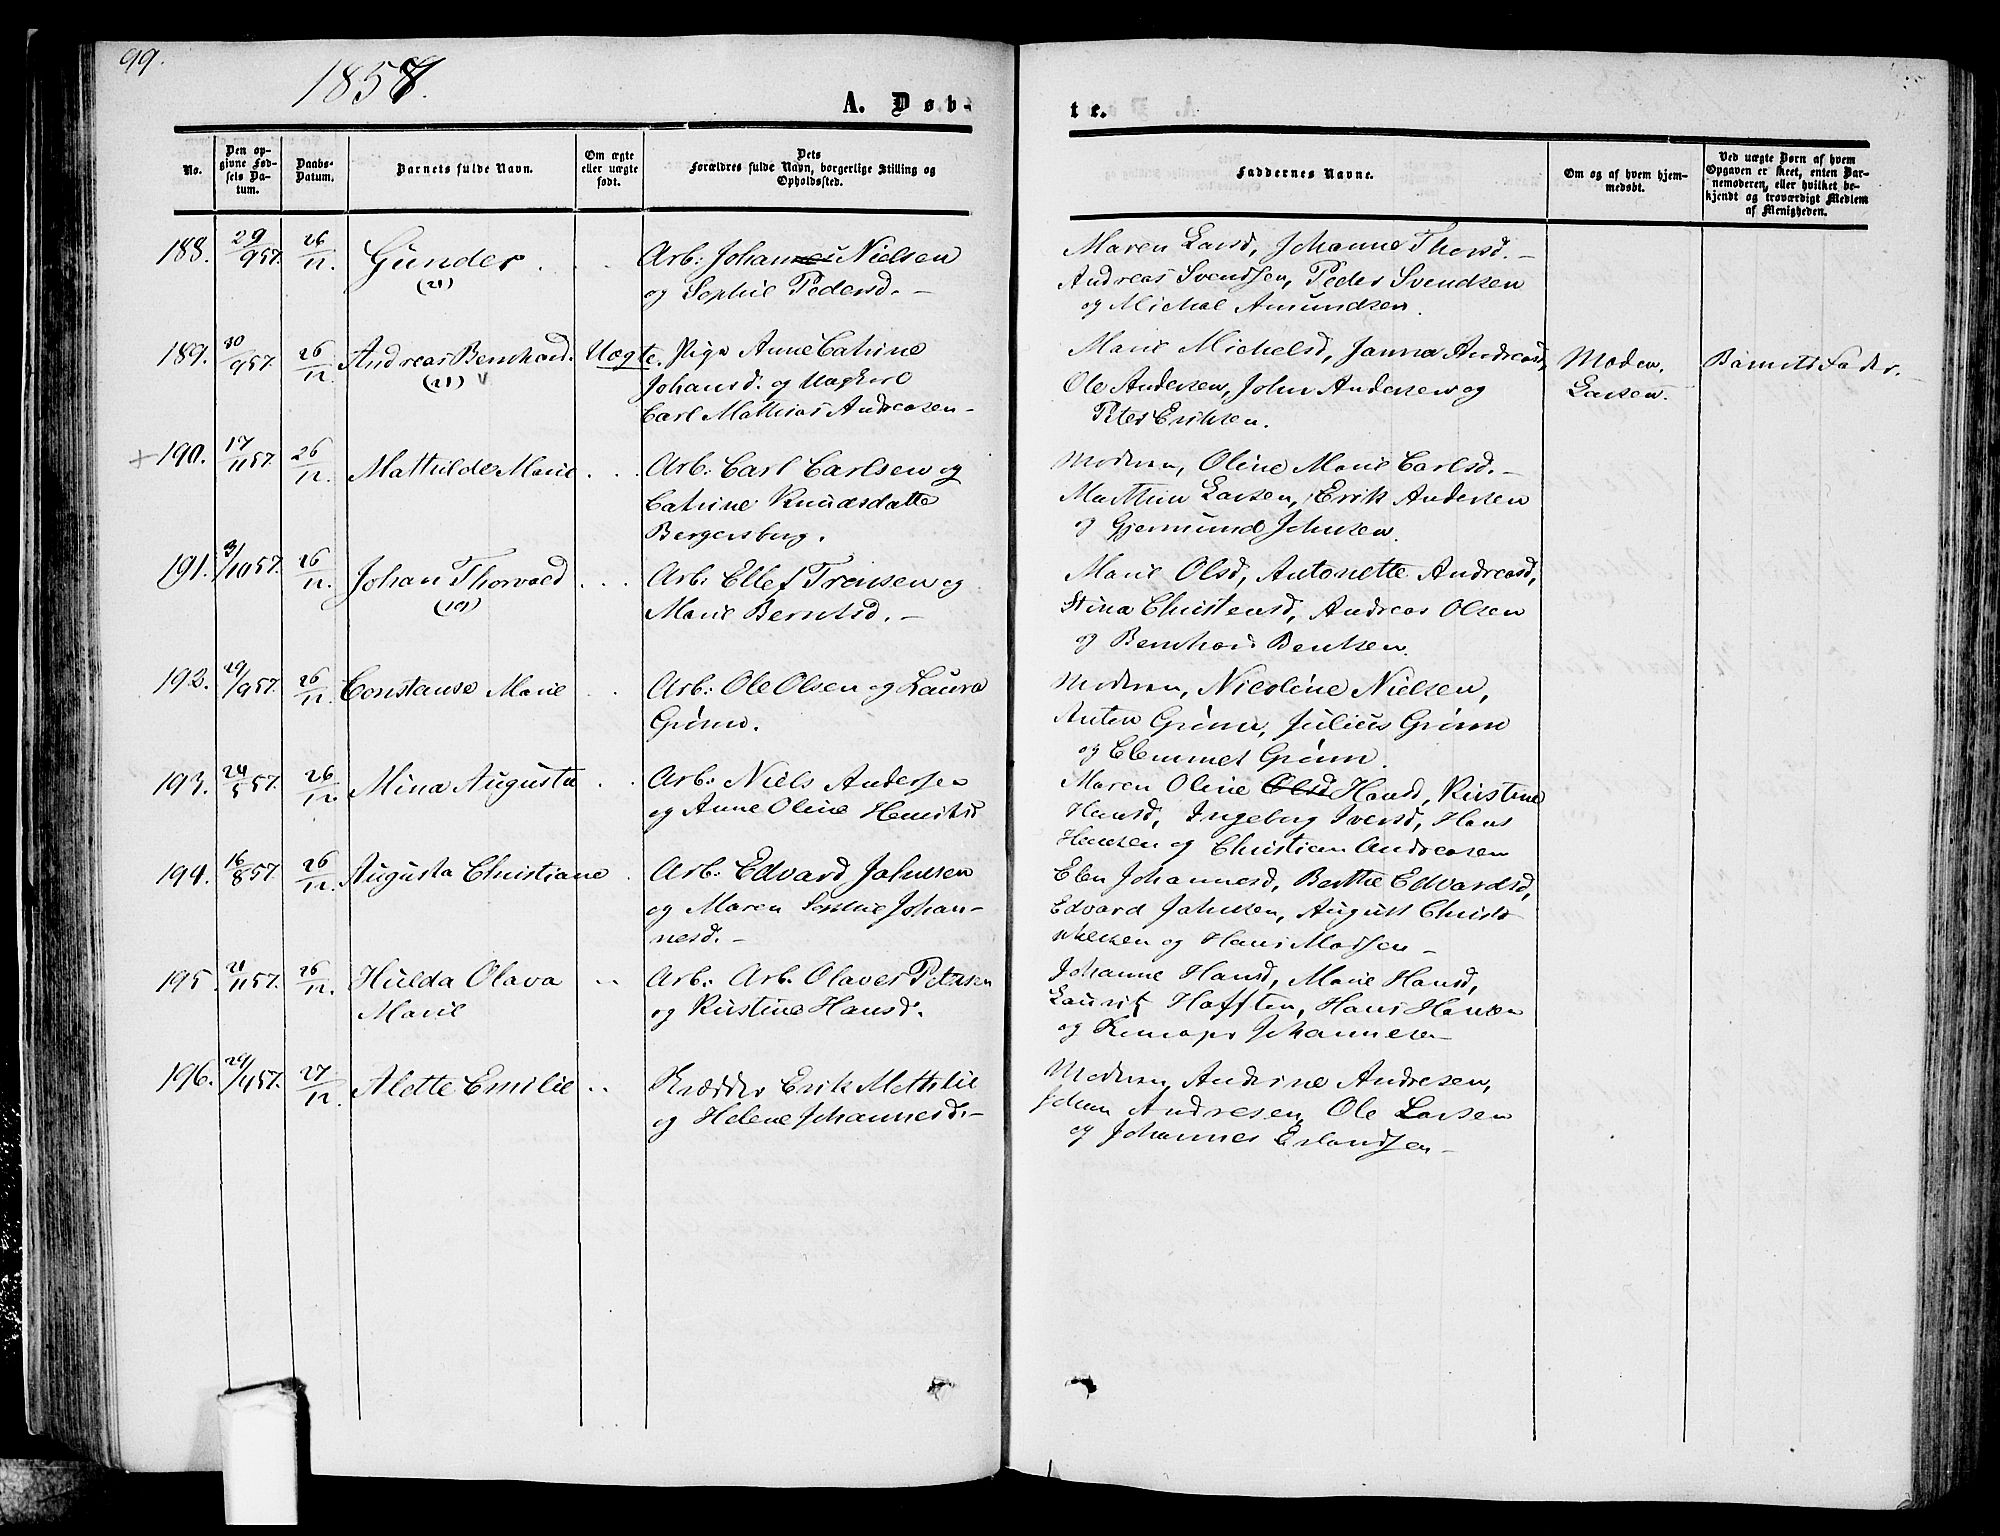 99.
1857.
A. Døb-
te.
No.
Den op-
givne Fød-
sels Da-
tum.
Daabs-
Datum.
Barnets fulde Navn.
Om ægte
eller uægte
født.
Dets
Forældres fulde Navn, borgerlige Stilling og
Opholdssted.
Faddernes Navne.
Om og af hvem hjem-
medøbt.
Ved uægte Børn af hvem
Opgaven er skeet, enten Bar-
nemoderen, eller hvilket be-
kjendt og troværdigt Medlem
af Menigheden.
188. 29/9 57. 26/12 Gunder Arb: Johan Nielsen
(21) og Sophie Pedersd. -
Maren Larsd, Johanne Thorsd. -
Andreas Svendsen, Peder Svendsen
og Michal Amundsen.
189. 30/9 57. 26/12 Andreas Bernhard. Uægte. Pige Anne Catrine
(21) Johansd. og Ungkarl
Carl Mathias Andreasen -
Marie Michelsd, Janna Andreasd,
Ole Andersen, John Andersen og
Peter Eriksen.
Larsen.
Barnets Fader.
190. 17/11 57. 26/12. Mathilde Marie Arb: Carl Carlsen og
Catrine Knudsdatter
Bergersberg.
Moderen, Oline Marie Carlsd. -
Marthin Larsen, Erik Andersen
og Gjermund Johnsen.
191. 3/10 57. 26/12. Johan Thorvald Arb: Ellef Trensen og
(10) Marie Berntsd. -
Marie Olsd, Antonette Andreasd,
Stina Christensd, Andreas Olsen
og Bernhard Bentsen.
192. 29/9 57. 26/12. Constanse Marie Arb: Ole Olsen og Laura
Grimm.
Moderen, Nicoline Nielsen,
Anton Grimm, Julius Grimm
og Clemmet Grimm.
193. 24/5 57. 26/12. Mina Augusta Arb: Niels Andersen
og Anne Oline Henriksd
Maren Oline Olsd Hansd, Kristine
Hansd, Ingeborg Iversd, Hans
Hansen og Christian Andreasen
194. 16/8 57. 26/12. Augusta Christiane Arb: Edvard Johnsen
og Maren Sophie Johan-
nesd. -
Elen Johannesd, Berthe Edvardsd,
Edvard Johnsen, August Christo
phersen og Hans Madsen -
195. 21/11 57. 26/12. Hulda Olava Arb: Arb. Olaves Petersen
Marie og Kristine Hansd.
Johanne Hansd, Marie Hansd,
Lauritz Hofften, Hans Hansen
og Johannesen
196. 29/4 57. 27/12. Alette Emilie Erik Mathilie
og Helene Johannesd. -
Moderen, Andrine Andresen,
Johan Andresen, Ole Larsen
og Johannes Erlandsen -